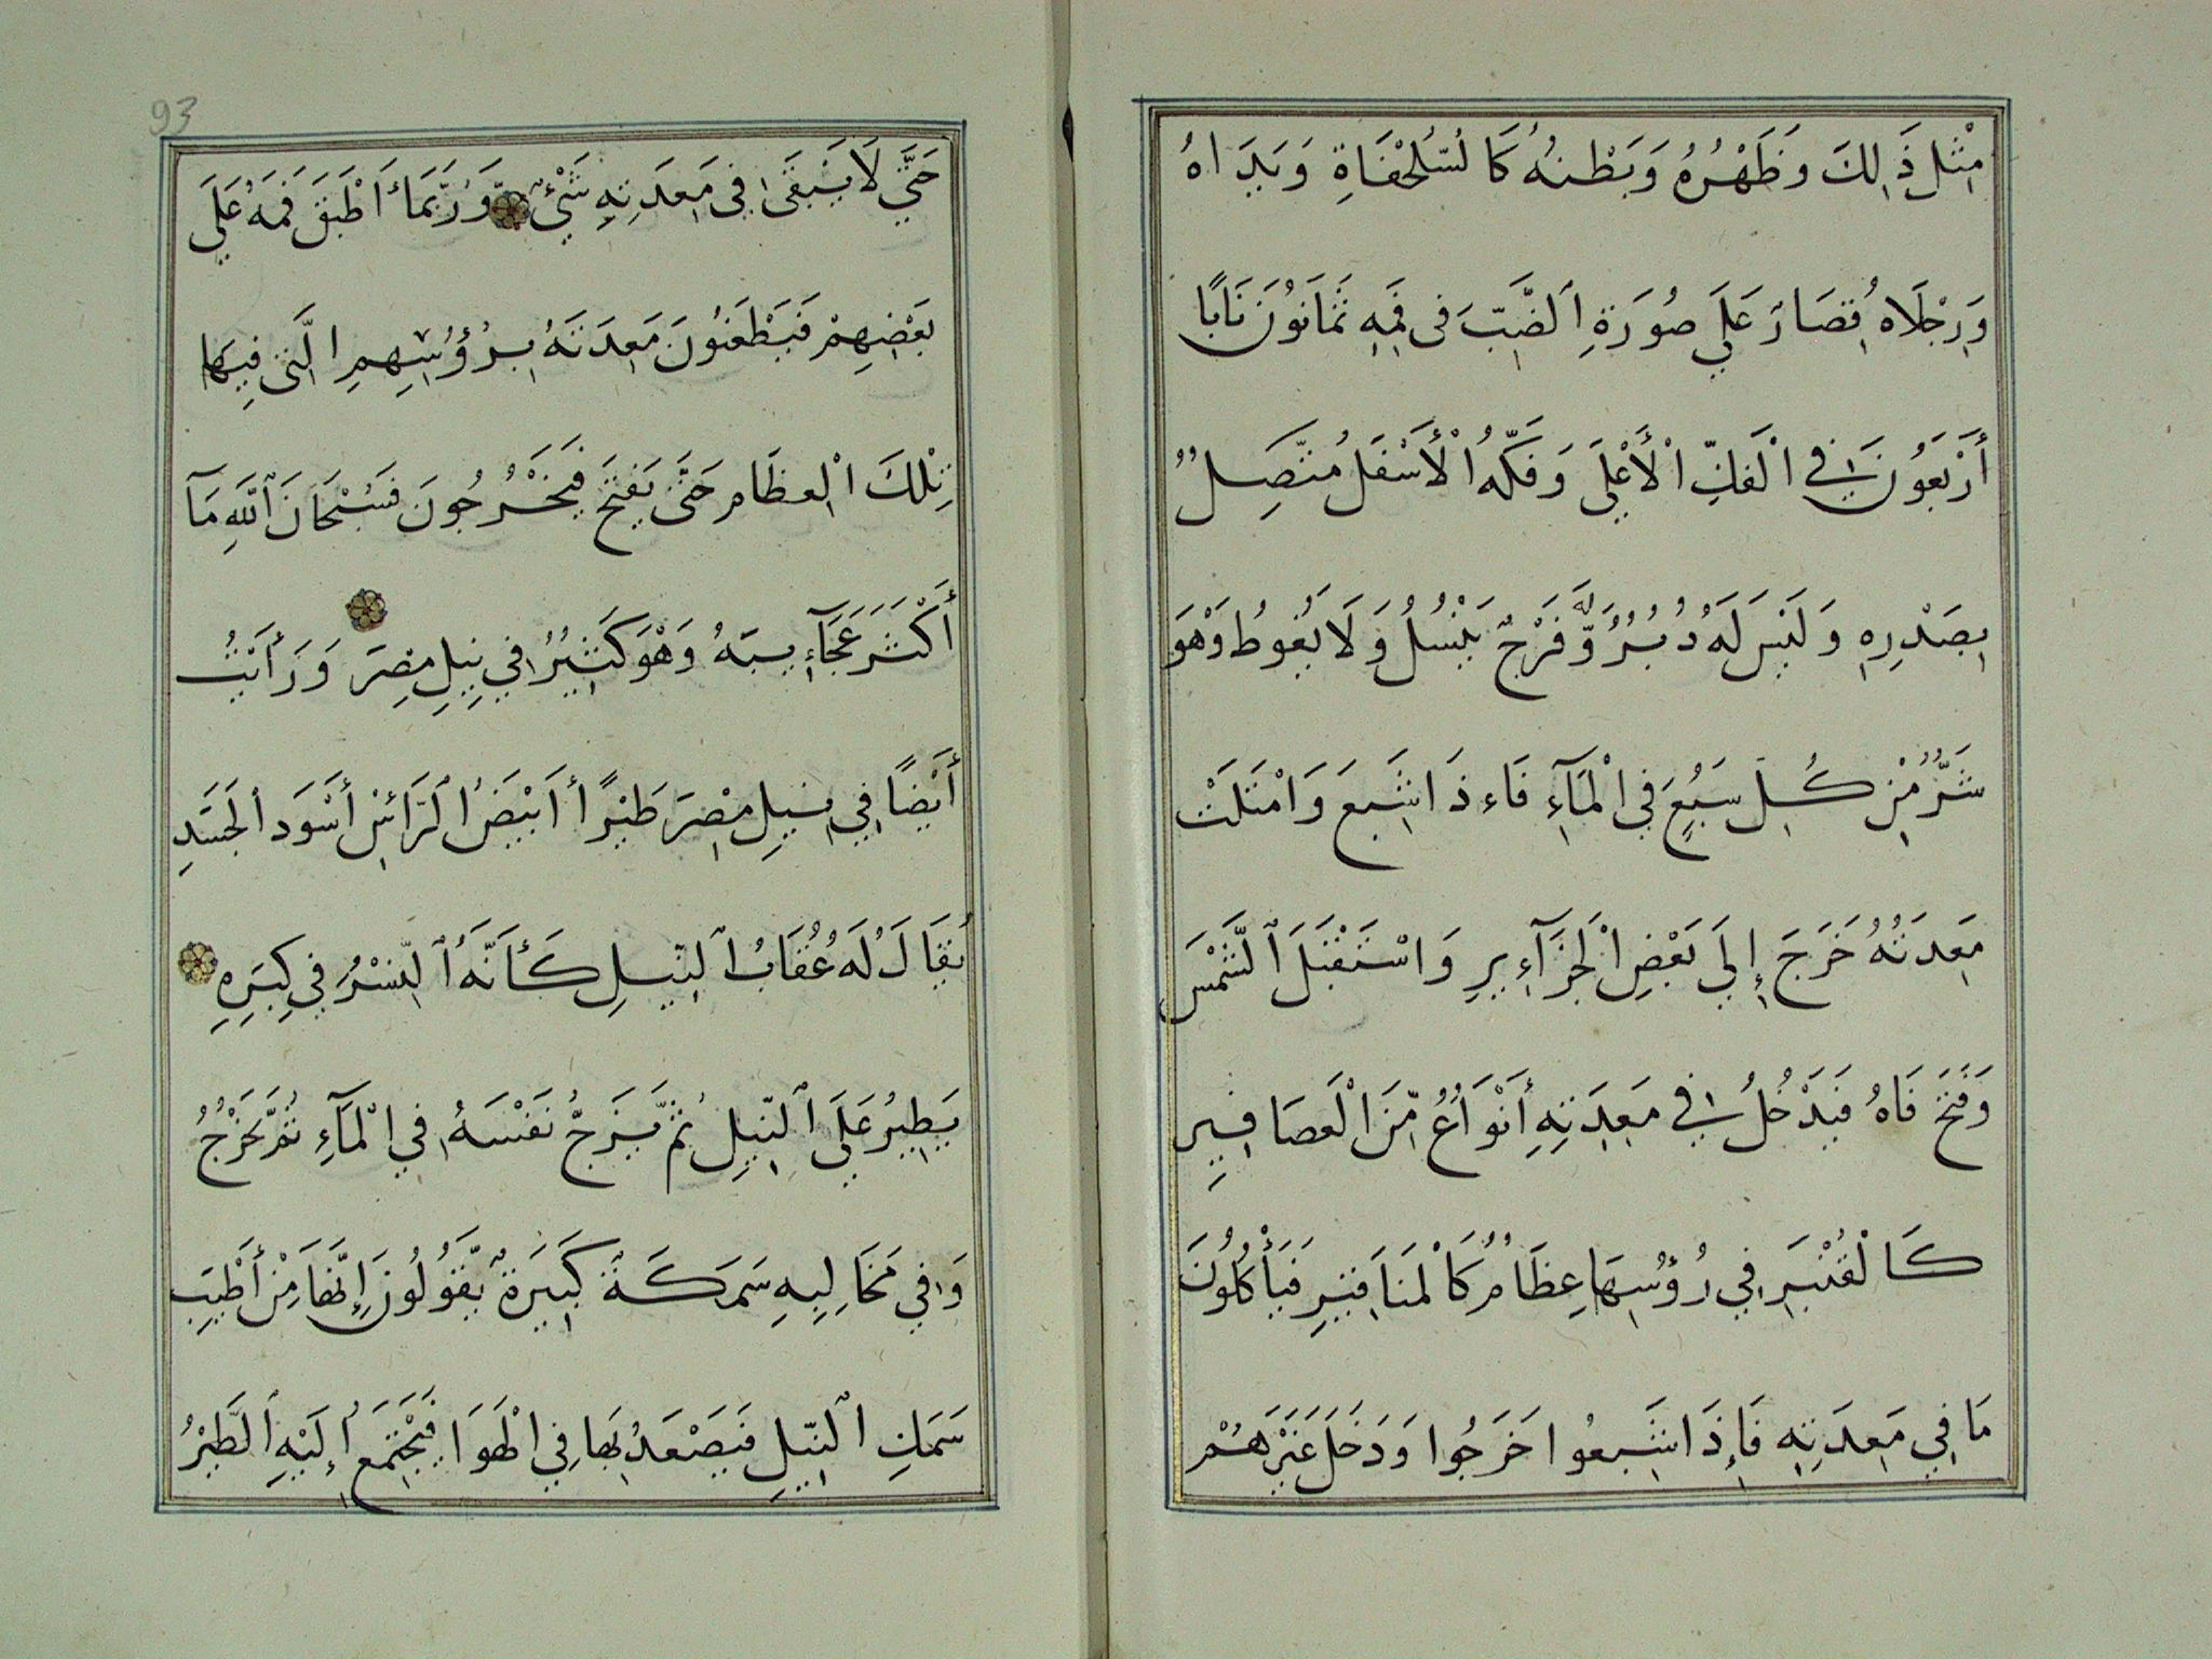 مِثْلَ ذَالِكَ وَظَهْرُهُ وَبَطْنُهُ كَا لسُّلَحْفَاةِ وَيَدَاهُ
وَرِجْلَاهُ قِصَارٌ عَلَي صُورَةِ اَلضَّبِّ فى فَمِهِ ثَمَانُونَ نَابًا
أَرْبَعُونَ فِي الْفَكِّ الْأَعْلَي وَفَكُّهُ الْأَسْفَلُ مُتَّصِلٌ
بِصَدْرِهِ وَلَيْسَ لَهُ دُبُرٌ وَّلَهُ فَرْجٌ يَنْسُلُ وَلَا يَغُوطُ وَهْوَ
شَرٌّ مِّنْ كُلِّ سَبُعٍ فِي الْمَآءِ فَاءذَا شَبِعَ وَامْتَلَتْ
مَعِدَتُهُ خَرَجَ إِلَي بَعْضِ الْجَزَآءِيرِ وَاسْتَقْبَلَ اَلشَّمْسَ
وَفَتَحَ فَاهُ فَيَدْخُلُ فِي مَعِدَتِهِ أَنْوَاعٌ مِّنَ الْعَصَافِيرِ
كَالْقُنْبَرِ فِي رُؤُسِهَا عِظَامٌ كَالْمَنَاقِيرِ فَيَأْكُلُونَ
مَا فِي مَعِدَتِهِ فَإِذَا شَبِعُوا خَرَجُوا وَدَخَلَ غَيْرُهُمْ
93
حَتَّي لَا يَبْقَى فِي مَعِدَتِهِ شَئْءٌ وَرُبَّمَا أَطْبَقَ فَمَهُ عَلَي
بَعْضِهِمْ فَيَطْعَنُونَ مَعِدَتَهُ بِرُؤُسِهِمِ الَّتى فِيهَا
تِلْكَ الْعِظَام حَتَّى يَفْتَحَ فَيَخْرُجُونَ فَسُبْحَانَ اَللَّهِ مَآ
أَكْثَرَ عَجَآءِيبَهُ وَهْوَ كَثِيرٌ فِي نِيلِ مِصْرَ وَرَأَيْتُ
أَيْضًا فِي نِيلِ مِصْرَ طَيْرًا أَبْيَضَ اَلرَّائْسِ أَسْوَدَ اَلْجَسَدِ
يُقَالَ لَهُ عُقَابُ اَلنِّيلِ كَأَنَّهُ اَلنَّسْرُ فِي كِبَرِهِ
يَطِيرُ عَلَى اَلنِّيلِ ثُمَّ يَزَجُّ نَفْسَهُ فِي الْمَآءِ ثُمَّ يَخْرُجُ
وَفِي مَخَالِيبِهِ سَمَكَةٌ كَبِيَرَةٌ يَّقُولُونَ إِنَّهَا مِنْ أَطْيَبِ
سَمَكِ اَلنِّيلِ فَيَصْعَدُ بِهَا فِي الْهَوَا فَيَجْتَمِعُ إِلَيْهِ اَلطَّيْرُ